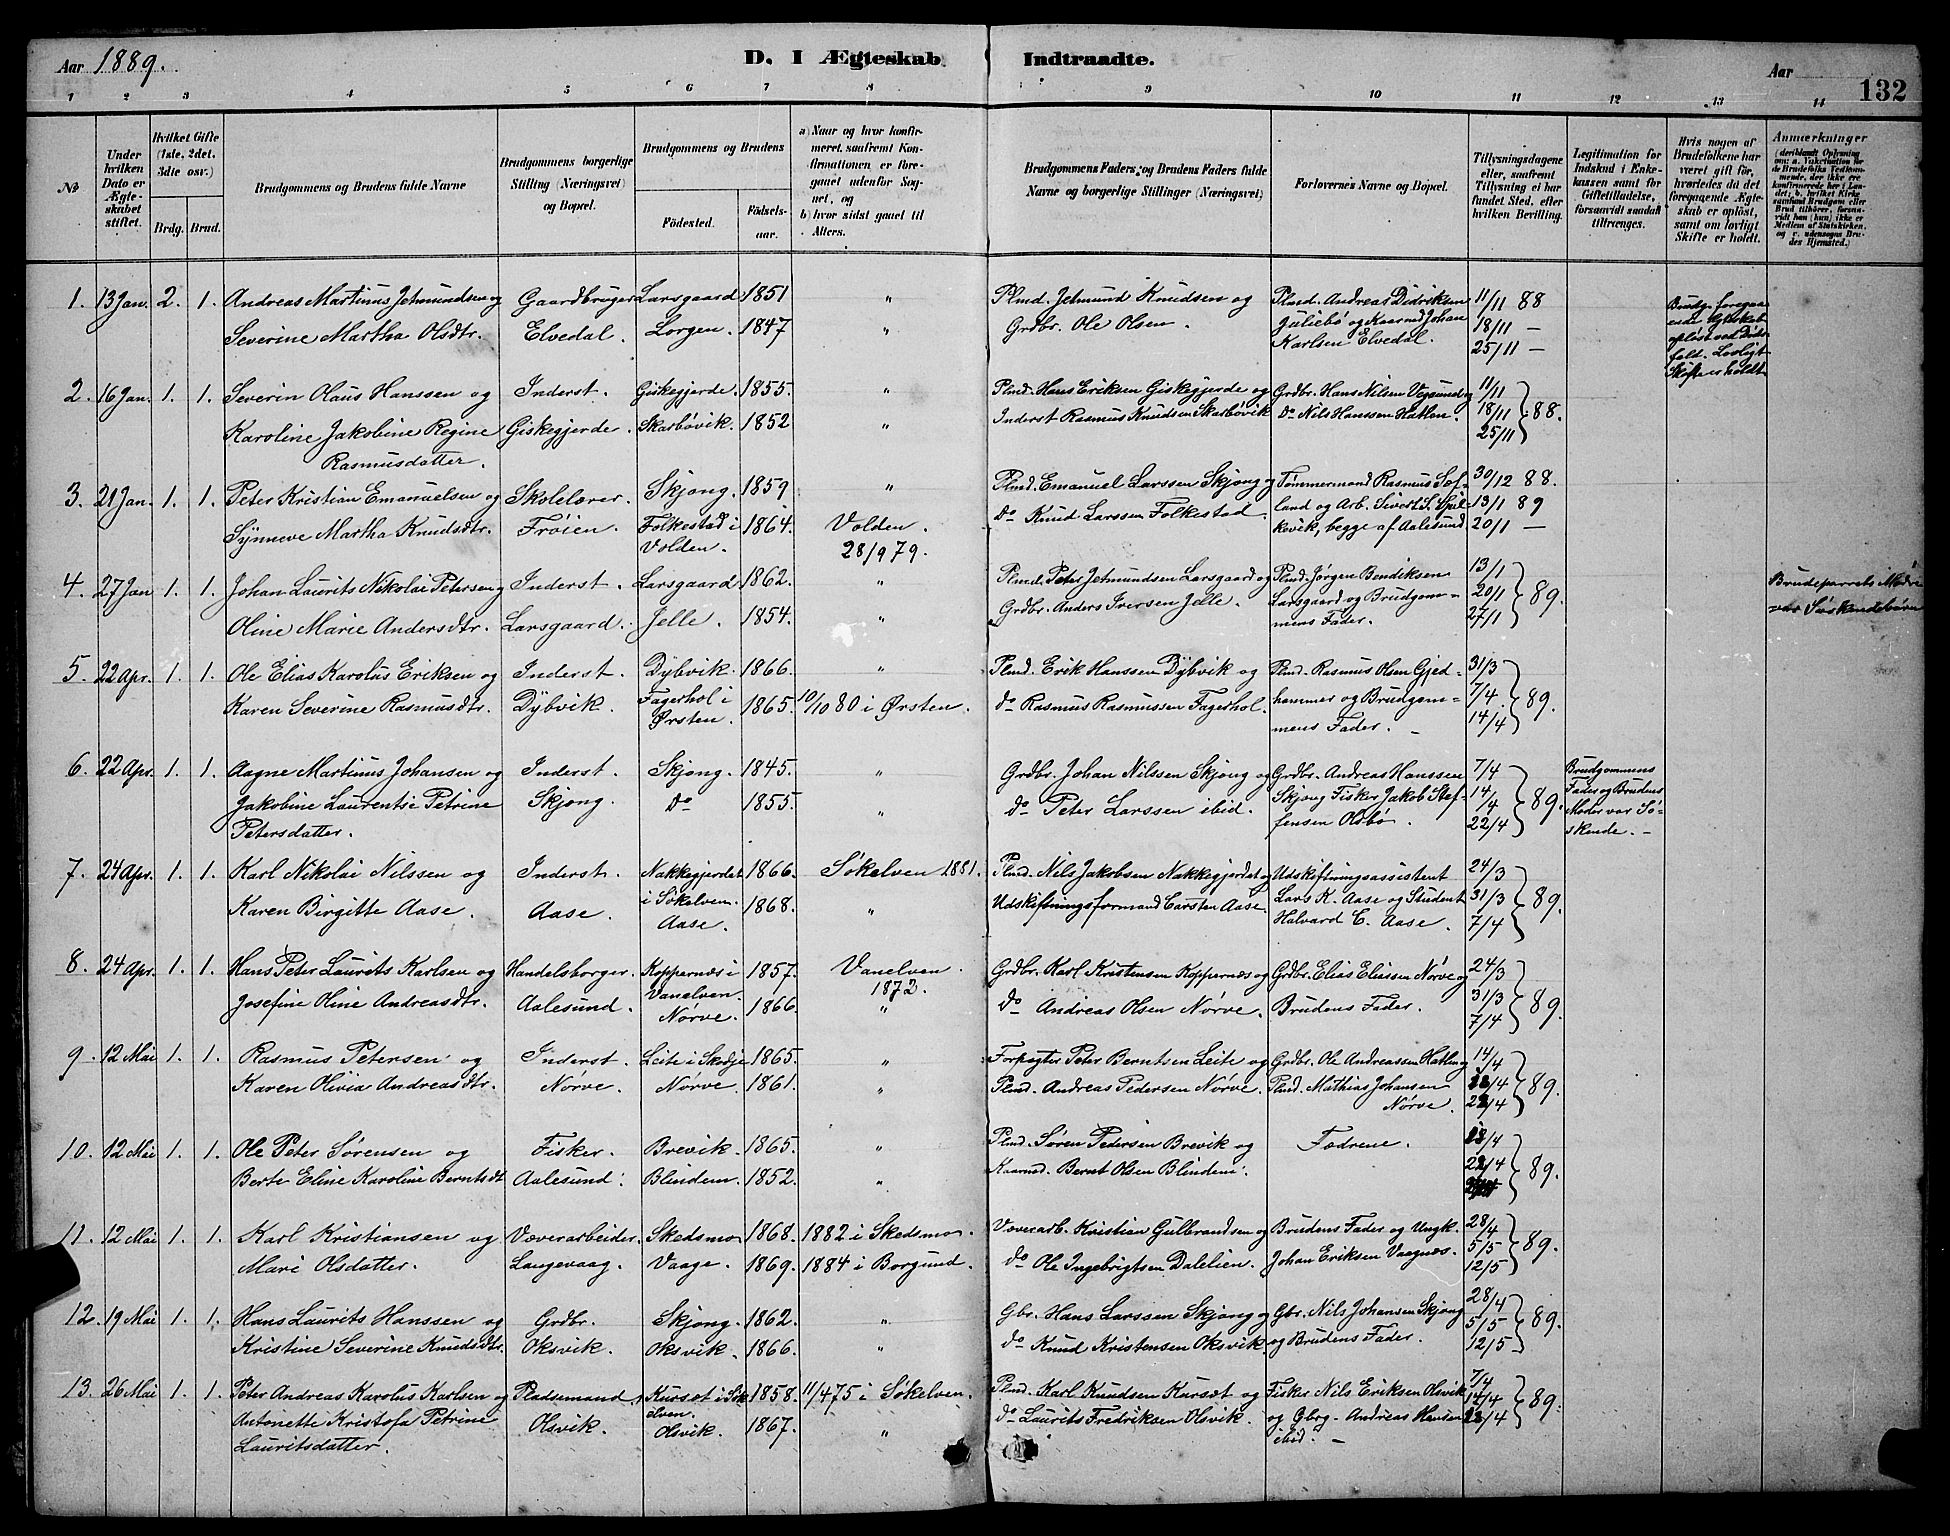 Aar 1889.
D. I Ægteskab Indtraadte.
Aar
132
1 2 3 4 5 6 7 8 9 10 11 12 13 14
№
Under hvilken Dato er Ægteskabet stiftet.
Hvilket Gifte (1ste, 2det, 3die osv.)
Brdg. Brud.
Brudgommens og Brudens fulde Navne
Brudgommens borgerlige Stilling (Næringsvei) og Bopæl.
Brudgommens og Brudens
Födested.
Födselsaar.
a) Naar og hvor konfirmeret, saafremt Konfirmationen er foregaaet udenfor Sognet, og
b) hvor sidst gaaet til Alters.
Brudgommens Faders, og Brudens Faders fulde Navne og borgerlige Stillinger (Næringsvei)
Forlovernes Navne og Bopæl.
Tillysningsdagene eller, saafremt Tillysning ei har fundet Sted, efter hvilken Bevilling.
Legitimation for Indskud i Enkekassen samt for Giftetilladelse, forsaavidt saadan tiltrænges.
Hvis nogen af Brudefolkene har været gift för, hvorledes da det foregaaende Ægteskab er oplöst, samt om lovligt Skifte er holdt.
Anmærkninger
1. 13 Jan. 2. 1. Andreas Martinus Jetmundsen og Gaardbruger Larsgaard 1851 " Plmd. Jetmund Knudsen og Plmd. Andreas Didriksen 11/11 88 Brudg. foregaa
Severine Martha Olsdtr. Elvedal. Lorgen. 1847 " Grdbr. Ole Olsen. Juliebø og Kaarmd Johan 18/11 — ende Ægteskab
Karlsen Elvedal. 25/11 — opløst ved Døds
fald. Lovligt
Skifte er holdt
2. 16 Jan. 1. 1. Severin Olaus Hanssen og Inderst. Giskegjerde 1855. " Plmd. Hans Eriksen Giskegjerde og Grdbr. Hans Nilsen Vegsund og 11/11
Karoline Jakobine Regine Giskegjerde. Skarbøvik. 1852 " Inderst Rasmus Knudsen Skarbøvik do Nils Hanssen Hatlen. 18/11 88.
Rasmusdatter. 25/11
3. 21 Jan. 1. 1. Peter Kristian Emanuelsen og Skolelærer. Skjong. 1859 " Plmd. Emanuel Larssen Skjong og Tømmermand Rasmus Sol- 30/12 88.
Synneve Martha Knudsdtr. Frøien. Folkestad i 1864. Volden. do Knud Larssen Folkestad. land og Arb. Sivert S. Spil- 13/1 89
Volden. 28/9 79. kevik, begge af Aalesund 20/1 —
4. 27 Jan 1. 1. Johan Laurits Nikolai Petersen og Inderst. Larsgaard 1862. " Plmd. Peter Jetmundsen Larsgaard og Plmd. Jørgen Bendiksen 13/1 Brudeparrets Mødre
Oline Marie Andersdtr. Larsgaard. Jelle. 1854. " Grdbr. Anders Iversen Jelle. Larsgaard og Brudgom- 20/1 89. var Søskendebørn
mens Fader. 27/1
5. 22 Apr. 1. 1. Ole Elias Karolus Eriksen og Inderst. Dybvik. 1866. " Plmd. Erik Hanssen Dybvik og Plmd. Rasmus Olsen Gjed- 31/3
Karen Severine Rasmusdtr. Dybvik. Fagerhol i 1865. 10/10 80 i Ørsten. do Rasmus Rasmussen Fagerhol. hammer og Brudgom- 7/4 89.
Ørsten. mens Fader. 14/4
6. 22 Apr. 1. 1. Aagne Martinus Johansen og Inderst. Skjong. 1845. " Grdbr. Johan Nilssen Skjong og Grdbr. Andreas Hanssen 7/4 Brudgommens
Jakobine Laurentse Petrine Skjong. do 1855. " do Peter Larssen ibid. Skjong Fisker Jakob Stef- 14/4 89. Fader og Brudens
Petersdatter. fensen Olsbø. 22/4 Moder var Sø-
skende. —
7. 24 Apr. 1. 1. Karl Nikolai Nilssen og Inderst. Nakkegjerdet 1866. Søkelven 1881. Plmd. Nils Jakobsen Nakkegjerdet og Udskiftningsassistent 24/3
Karen Birgitte Aase. Aase. i Søkelven. 1868. " Udskiftningsformand Carsten Aase. Lars K. Aase og Student 31/3 89.
Aase. Halvard C. Aase. 7/4
8. 24 Apr. 1. 1. Hans Peter Laurits Karlsen og Handelsborger. Koppernæs i 1857. Vanelven. Grdbr. Karl Kristensen Koppernæs og Grdbr. Elias Eliassen Nørve og 24/3
Josefine Oline Andreasdtr. Aalesund. Vanelven. 1866. 1872. do Andreas Olsen Nørve. Brudens Fader. 31/3 89.
Nørve. " 7/4
9. 12 Mai 1. 1. Rasmus Petersen og Inderst. Leite i Skodje 1865. " Forpagter Peter Berntsen Leite og Grdbr. Ole Andreassen Hatlen og 14/4
Karen Olivia Andreasdtr. Nørve. Nørve. 1861. " Plmd. Andreas Pedersen Nørve. Plmd. Mathias Johansen 22/4 89.
Nørve. 28/4
10. 12 Mai 1. 1. Ole Peter Sørensen og Fisker. Brevik. 1865. " Plmd. Søren Pedersen Brevik og Fædrene. /4
Berte Eline Karoline Berntsdt Aalesund. Blindem. 1852. " Kaarmd. Bernt Olsen Blindem. /4 89.
11. 12 Mai 1. 1. Karl Kristiansen og Væverarbeider. Skedsmo 1868. 1882 i Skedsmo. Væverarb. Kristian Gulbrandsen og Brudens Fader og Ungk. 28/4
Mari Olsdatter. Langevaag. Vaage. 1869. 1884 i Borgund. do Ole Ingebrigtsen Dalelien. Johan Eriksen Vaagnæs. 5/5 89.
12/5
12. 19 Mai 1. 1. Hans Laurits Hanssen og Grdbr. Skjong. 1862. " Gbr. Hans Larssen Skjong og Gbr. Nils Johansen Skjong 28/4
Kristine Severine Knudsdtr. Oksvik. Oksvik. 1866. " do Knud Kristensen Oksvik. og Brudens Fader. 5/5 89.
12/5
13. 26 Mai 1. 1. Peter Andreas Karolus Karlsen og Pladsemand. Kursæt i Søk 1858. 11/4 75 i Søkelven. Plmd. Karl Knudsen Kursæt og Fisker Nils Eriksen Olsvik 7/4
Antonette Kristofa Petrine Olsvik. elven. 1867. " do Laurits Fredriksen Olsvik. og Gbrg. Andreas Hansen 14/4 89.
Lauritsdatter. Olsvik. ibid. — /4